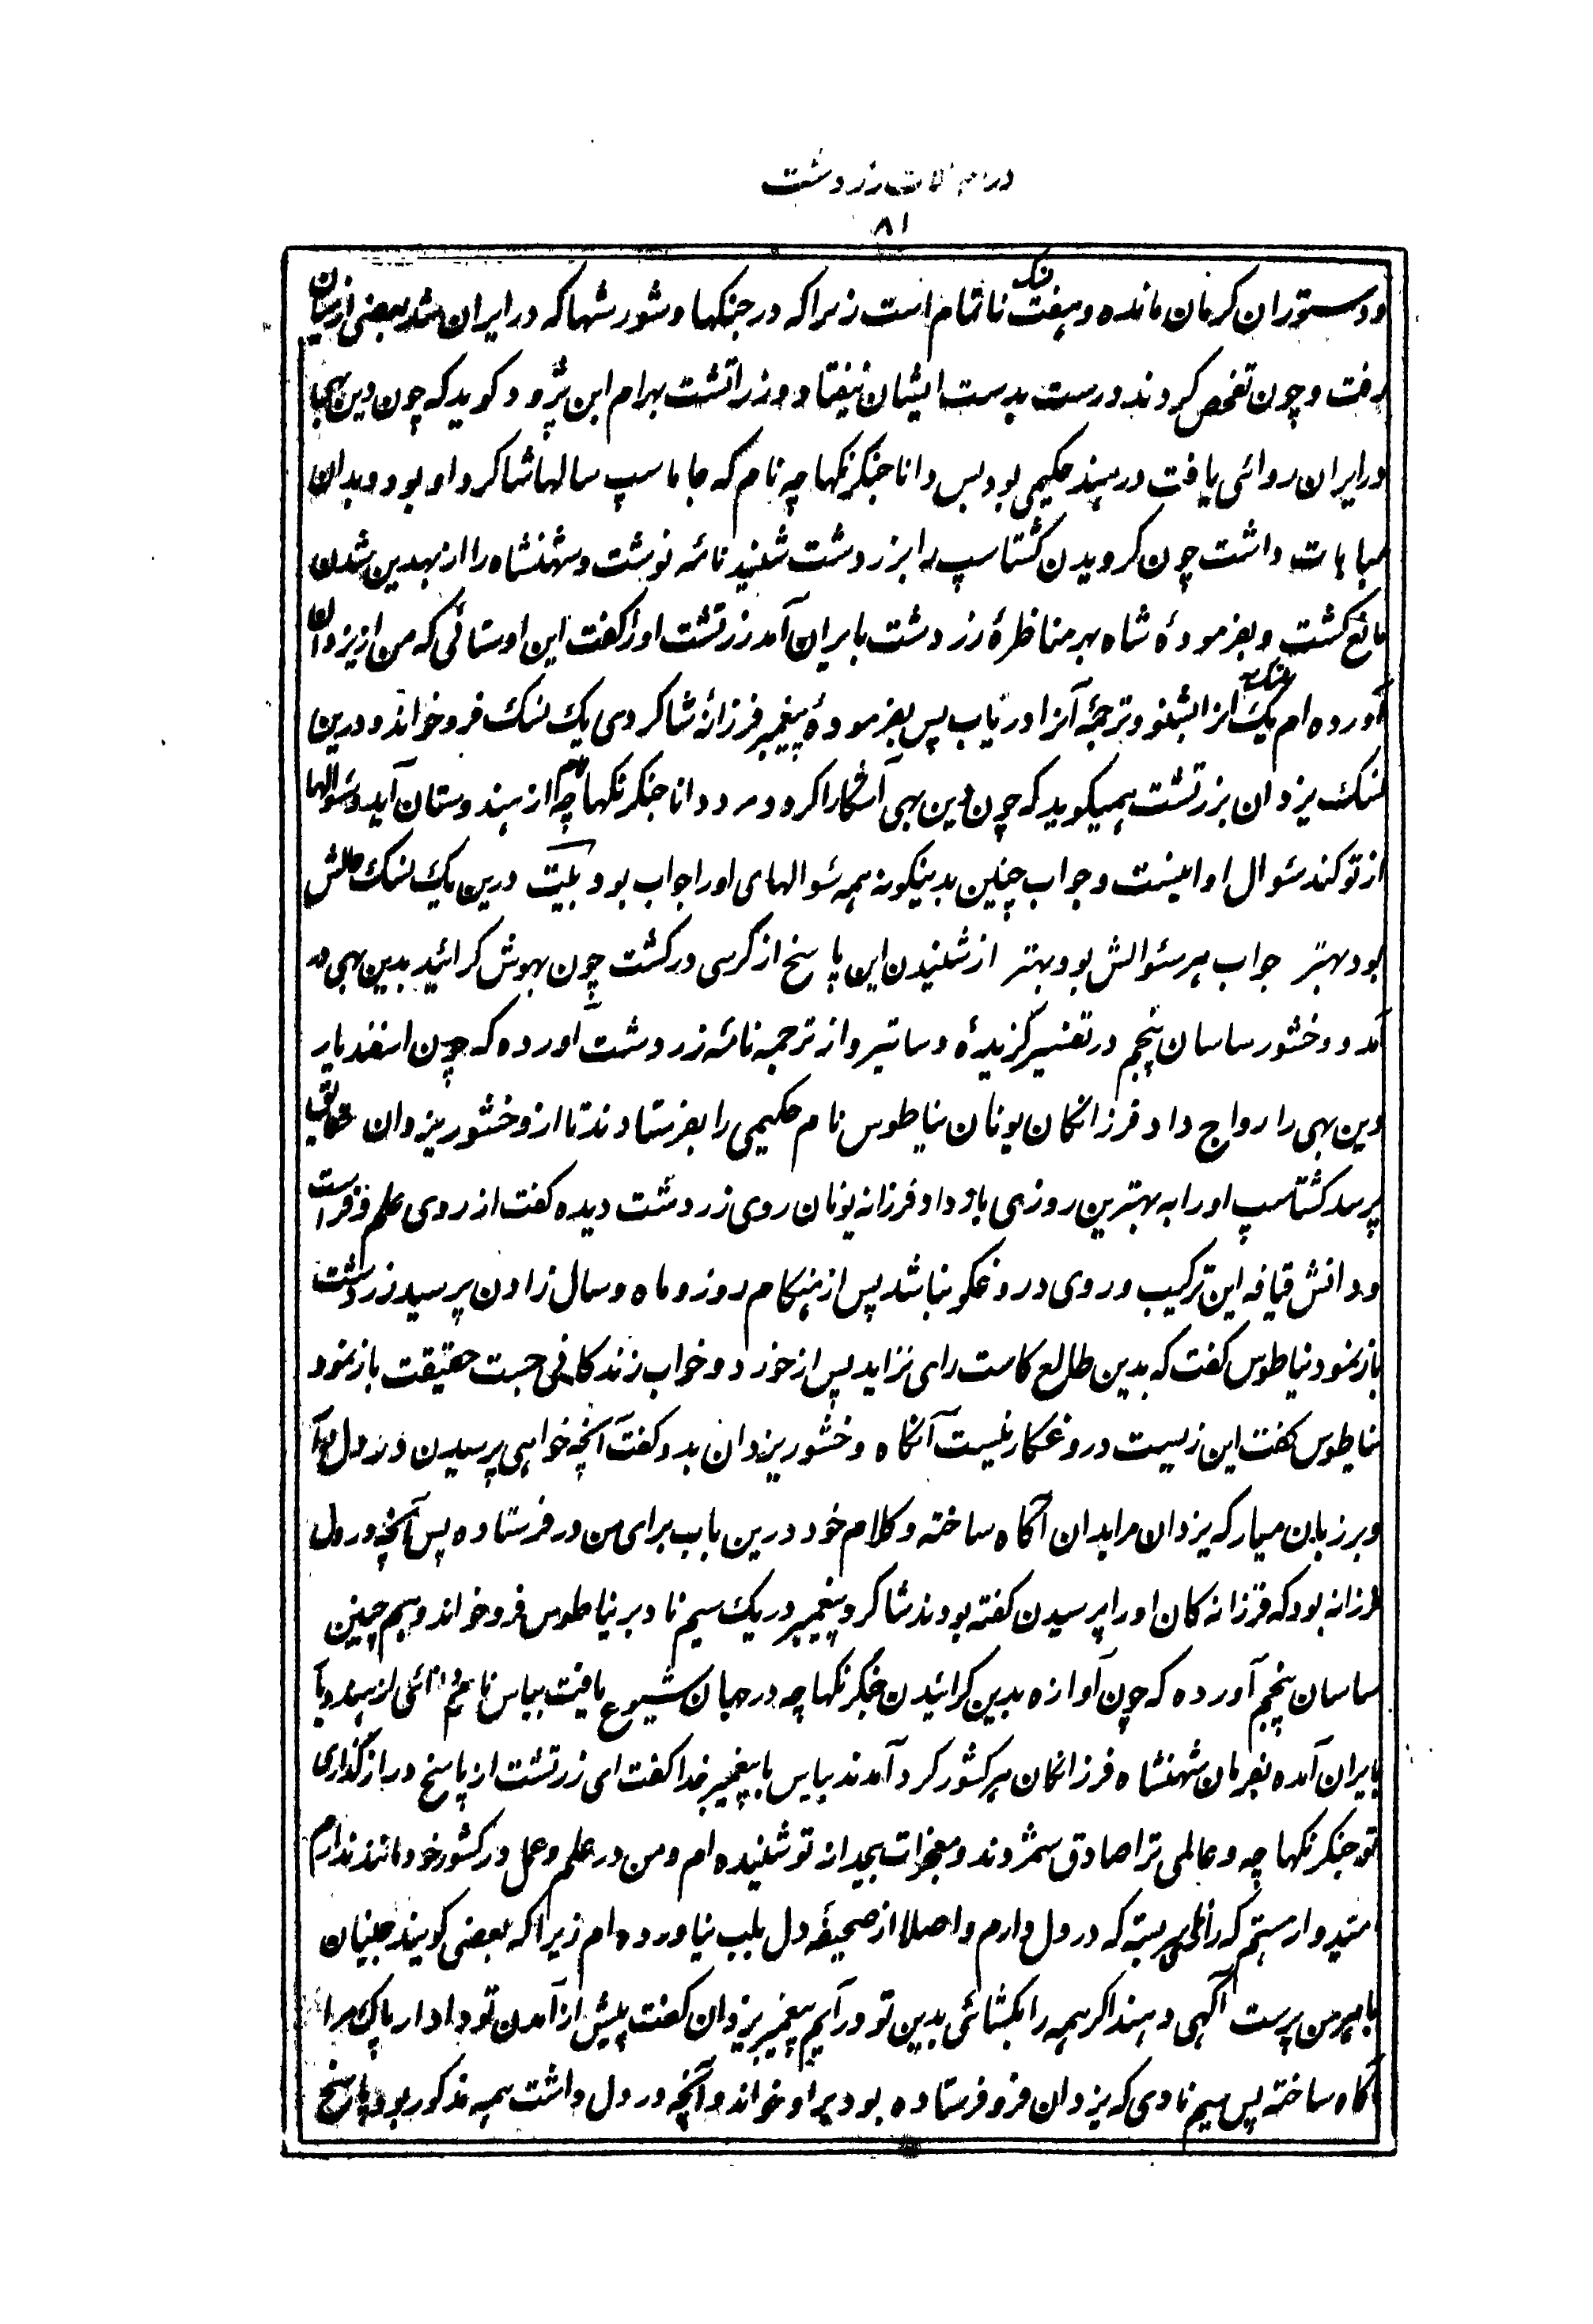 زردشت
۸۱
و دستوران کرمان مانده و هفت نسک ناتمام است زیرا که در جنکها و شورشها که در ایران شد بعضی از
رفت و چون تفحص کردند درست بدست ایشان نیفتاد و زراتشت بهرام ابن پژدو کوید که چون دین بهی
در ایران روائی یافت در هند حکیمی بود بس دانا جنکرنکهاچه نام که جاماسپ سالها شاکرد او بود و بدان
مباهات داشت چون کرویدن کشتاسپ را بزردشت شنید نامه نوشت و شهنشاه را از بهدین شدن
مانع کشت و بفرمودهٔ شاه بهر مناظرهٔ زردشت بایران آمد زرتشت اورا کفت این اوستائی که من از یزدان
آورده ام یک نسک ازا بشنو و ترجمهٔ آنرا دریاب پس بفرمودهٔ پیغمبر فرزانهٔ شاکردی یک نسک فرو خواند و درین
نسک یزدان بزرتشت همیکوید که چون دین بهی آشکارا کرد و مرد دانا جنکرنکهاچه نام از هندوستان آید و سئوالها
از تو کند سئوال او اینست و جواب چنین بدینکونه همه سئوالهای اورا جواب بود بیت درین یک نسک
بود بهتر جواب هر سئوالش بود بهتر از شنیدن این پاسخ از کرسی درکشت چون بهوش کرائید بدین بهی در
آمد و وخشور ساسان پنجم در تفسیر کزیدهٔ دساتیر و از ترجمه نامهٔ زردشت آورده که چون اسفندیار
دین بهی را رواج داد فرزانکان یونان نیاطوس نام حکیمی را بفرستادند تا از وخشور یزدان حقایق
پرسد کشتاسپ اورا به بهترین روزی بار داد فرزانه یونان روی زردشت دیده کفت از روی علم و فراست
و دانش قیافه این ترکیب و روی دروغکو نباشد پس از هنکام روز و ماه و سال زادن پرسید زردشت
بازنمود نیاطوس کفت که بدین طالع کاست رای نزاید پس از خورد و خواب و زندکانی جست حقیقت بازنمود
نیاطوس کفت این زیست دروغکار نیست آنکاه وخشور یزدان بدو کفت آنچه خواهی پرسیدن در دل
و بر زبان میار که یزدان مرا بدان آکاه ساخته و کلام خود درین باب برای من در فرستاده پس آنچه در دل
فرزانه بود که فرزانه کان اورا پرسیدن کفته بودند شاکرد پیغمبر در یک سیم ناد بر نیاطوس فرو خواند و هم چنین
ساسان پنجم آورده که چون آوازه بدین کرائیدن جنکرنکهاچه در جهان شیوع یافت بیاس نام دانائی از هند
بایران آمده بفرمان شهنشاه فرزانکان هر کشور کرد آمدند بیاس با پیغمبر خدا کفت ای زرتشت از پاسخ و رازگذاری
تو جنکرنکهاچه و عالمی ترا صادق شمردند و معجزات بیحد از تو شنیده ام و من در علم و عمل در کشور خود مانند ندارم
امیدوار هستم که رازهای سربسته که در دل دارم و اصلا از صحیفهٔ دل بلب نیاورده ام زیرا که بعضی کویند جنیان
باهرمن پرست آکهی دهند اکر همه را بکشائی بدین تو درآیم پیغمبر یزدان کفت پیش از آمدن تو دادار پاک مرا
آکاه ساخته پس سیم نادی که یزدان فرو فرستاده بود بر او خواند و آنچه در دل داشت همه مذکور بود با پاسخ